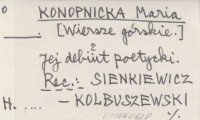 o KONOPNICKA Maria
[Wiersze górskie.]
?
Jej debiut poetycki.
Rec.: SIENKIEWICZ
H. .... – KOLBUSZEWSKI
%